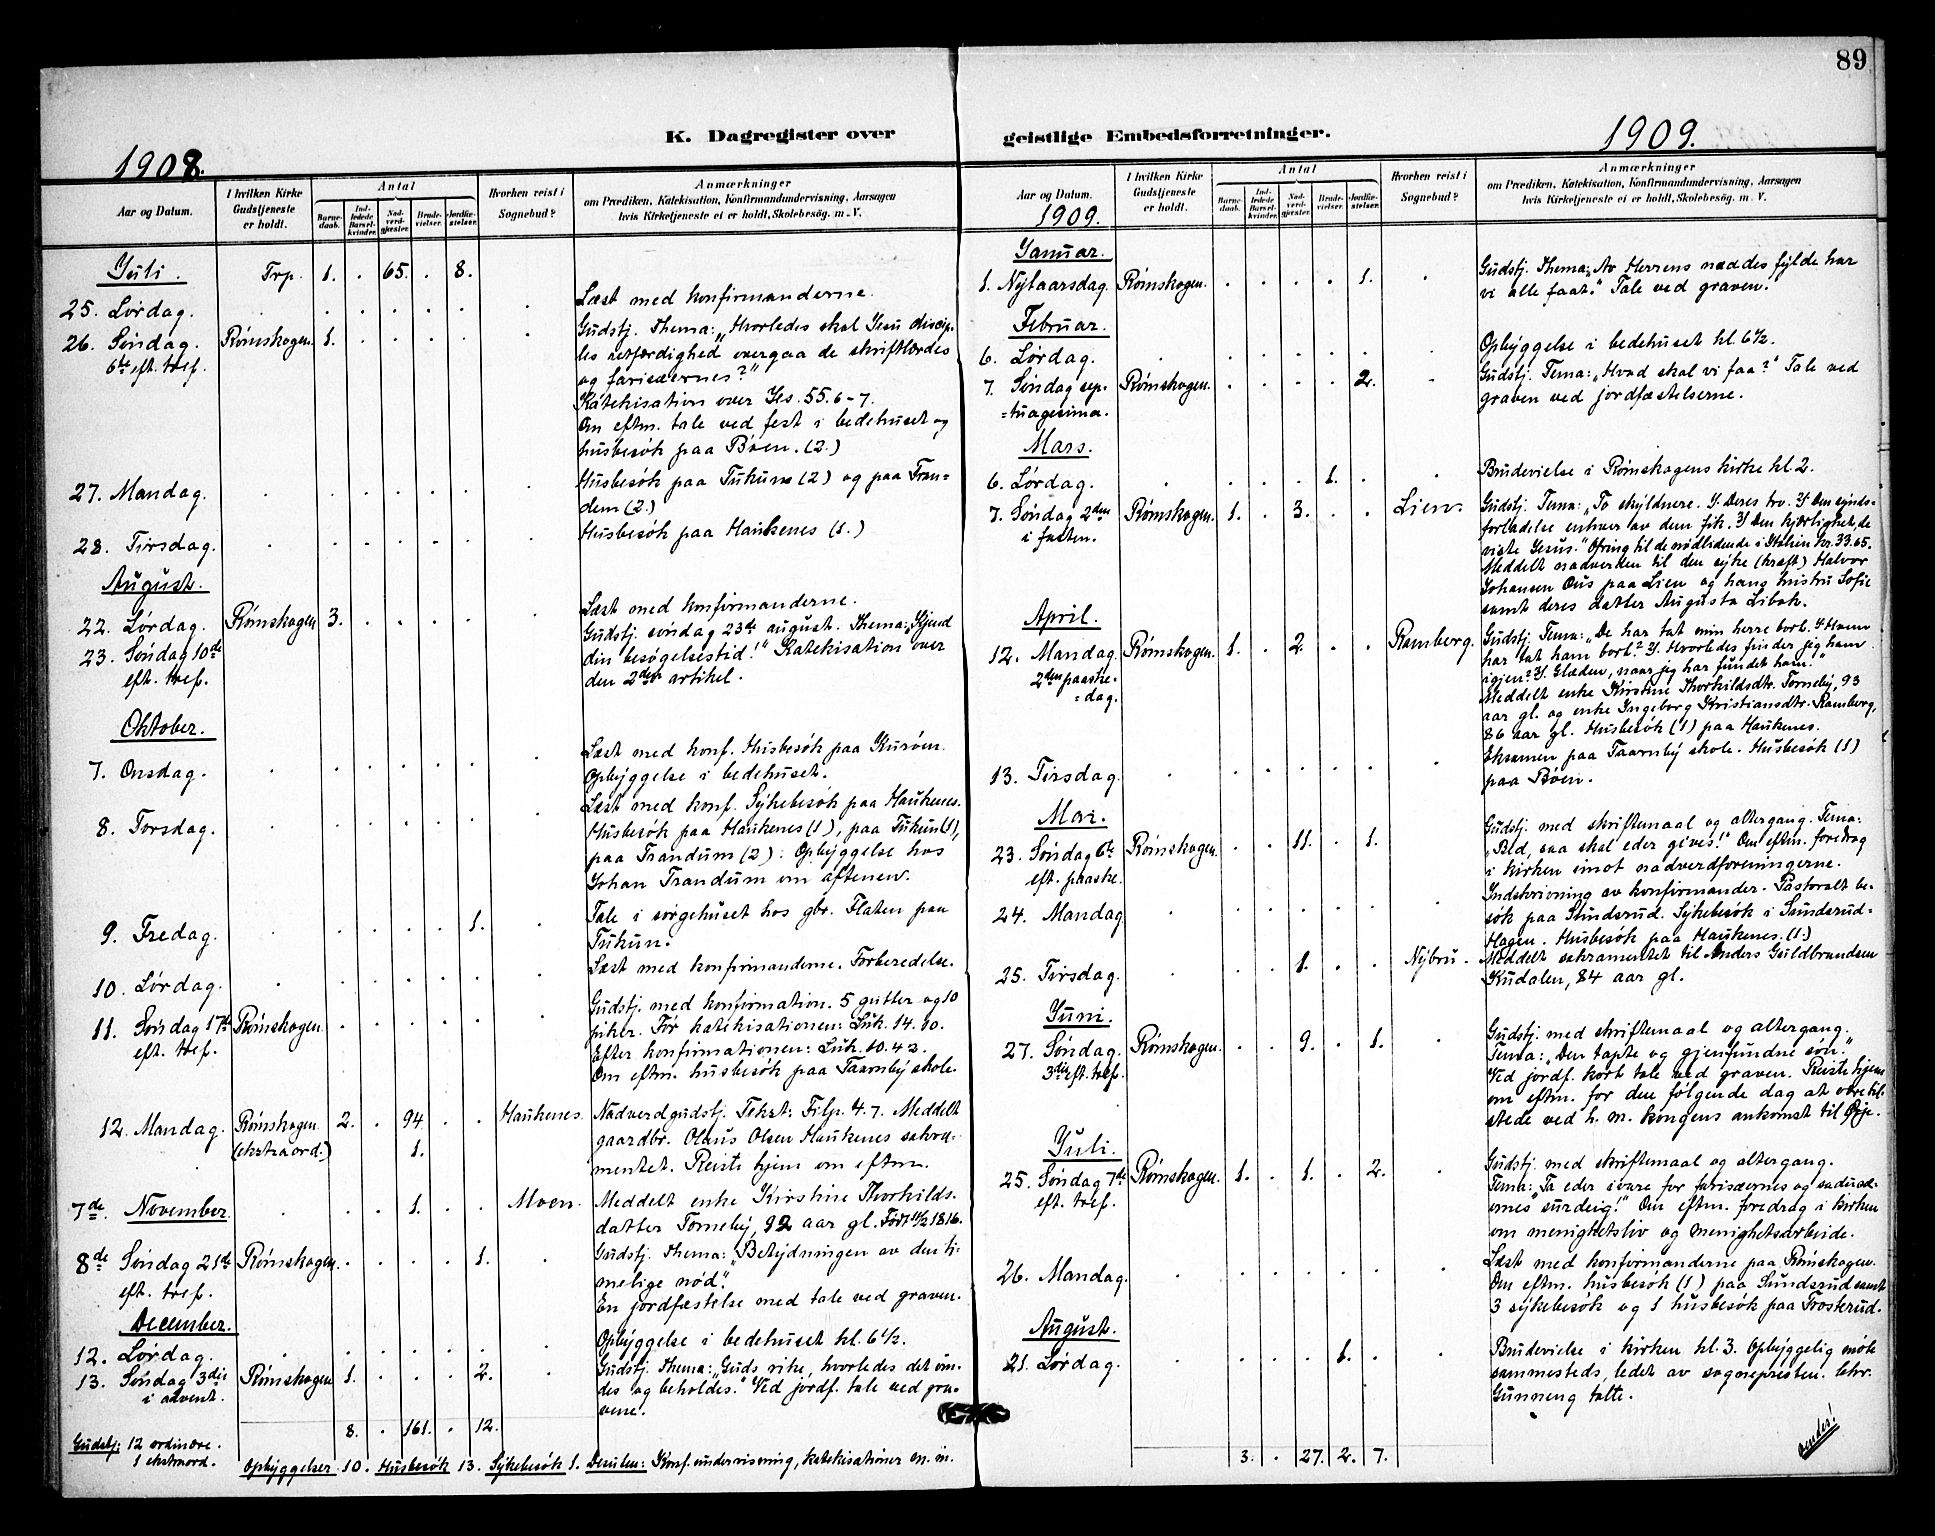 89
K. Dagregister over geistlige Embedsforretninger.
1908.
Aar og Datum.
I hvilken Kirke Gudstjeneste er holdt.
Antal
Barnedaab.
Indledede Barselkvinder.
Nadverdgjæster.
Brudevielser.
Jordfæstelser.
Hvorhen reist i Sognebud?
Anmærkninger
om Prædiken, Katekisation, Konfirmandundervisning, Aarsagen
hvis Kirketjeneste ei er holdt, Skolebesøg. m. V.
Juli. Trp. 1. . 65. . 8.
25. Lørdag. . . . . . . Læst med konfirmanderne.
26. Søndag. Rømskogen. 1. . . . . . Gudstj. Thema: „Hvorledes skal Jesu discip-
6te eft. tref. les retfærdighed overgaa de skriftlærdes
og farisæernes?"
Katekisation over Jes. 55. 6-7.
Om eftm. tale ved fest i bedehuset og
husbesøk paa Bøen. (2.)
27. Mandag. . . . . . . . Husbesøk paa Tukun (2) og paa Tran-
dem (2.)
28. Tirsdag. . . . . . . . Husbesøk paa Haukenes (1.)
August.
22. Lørdag. Rømskogen 3. . . . . . Læst med konfirmanderne.
23. Søndag 10de Gudstj. søndag 23de august. Thema: „Kjend
eft. tref. din besøgelsestid!" Katekisation over
den 2den artikel.
Oktober.
7. Onsdag. . . . . . . . Læst med konf. Husbesøk paa Kurøen.
Opbyggelse i bedehuset.
8. Torsdag. . . . . . . . Læst med konf. Sykebesøk paa Haukenes.
Husbesøk paa Haukenes (1), paa Tukun (1),
paa Trandum (2): Opbyggelse hos
Johan Trandum om aftenen.
9. Fredag. . . . . . 1. . Tale i sørgehuset hos gbr. Flaten paa
Tukun.
10. Lørdag. . . . . . . . Læst med konfirmanderne. Forberedelse.
11. Søndag 17de Rømskogen. . . . . . . Gudstj. med konfirmation. 5 gutter og 10
eft. tref. piker. Før katekisationen: Luk. 14. 30.
Efter konfirmationen: Luk. 10. 42.
Om eftm. husbesøk paa Taarnby skole.
12. Mandag. Rømskogen 2. . 94 . . Haukenes. Nadverdgudstj. Tekst: Filp. 4. 7. Meddelt
(ekstraord.) 1. gaardbr. Olaus Olsen Haukenes sakra-
mentet. Reiste hjem om eftm.
7de November. . . . 1. . . Moen. Meddelt enke Kirstine Thorkilds-
datter Torneby, 92 aar gl. Født 11/2 1816.
8de Søndag 21de Rømskogen. . . . . 1. . Gudstj. Thema: „Betydningen av den ti-
eft. tref. melige nød."
En jordfæstelse med tale ved graven.
December.
12. Lørdag. . . . . . . . Opbyggelse i bedehuset kl. 6 1/2.
13. Søndag 3die Rømskogen 1. . . . 2. . Gudstj. Thema: „Guds rike, hvorledes det øin-
i advent. des og beholdes." Ved jordf. tale ved gra-
vene.
8. . 161. . 12.
Gudstj: 12 ordinære.
1 ekstraord. Opbyggelser 10. Husbesøk 13. Sykebesøk 1. Desuten: Konf. undervisning, katekisationer m. m.
1909.
Aar og Datum.
1909.
I hvilken Kirke Gudstjeneste er holdt.
Antal
Barnedaab.
Indledede Barselkvinder.
Nadverdgjæster.
Brudevielser.
Jordfæstelser.
Hvorhen reist i Sognebud?
Anmærkninger
om Prædiken, Katekisation, Konfirmandundervisning, Aarsagen
hvis Kirketjeneste ei er holdt, Skolebesøg. m. V.
Januar.
1. Nytaarsdag. Rømskogen. . . . . 1. . Gudstj. Thema: „Av Herrens naades fylde har
vi alle faat." Tale ved graven.
Februar.
6. Lørdag. . . . . . . . Opbyggelse i bedehuset kl. 6 1/2.
7. Søndag sep- Rømskogen. . . . . 2. . Gudstj. Tema: „Hvad skal vi faa?" Tale ved
=tuagesima. graven ved jordfæstelserne.
Mars.
6. Lørdag. . . . . 1. . . Brudevielse i Rømskogens kirke kl. 2.
7. Søndag 2den Rømskogen. 1. . 3. . . Lien. Gudstj. Tema: „To skyldnere. 1/ Deres tro. 2/ Den synds-
i fasten. forladelse enhver av dem fik. 3/ Den kjærlighet, de
viste Jesus." Ofring til de nødlidende i Italien kr. 33.65.
Meddelt nadverden til den syke (kræft) Halvor
Johansen Ous paa Lien og hans hustru Sofie
samt deres datter Augusta Libak.
April.
12. Mandag. Rømskogen. 1. . 2. . . Ramberg. Gudstj. Tema: „De har tat min herre bort. 1/ Hvem
2den paaske- har tat ham bort? 2/ Hvorledes finder jeg ham
=dag. igjen? 3/ Glæden, naar jeg har fundet ham."
Meddelt enke Kirstine Thorkildsdtr. Torneby, 93
aar gl. og enke Ingeborg Kristiansdtr. Ramberg,
86 aar gl. Husbesøk (1) paa Haukenes.
13. Tirsdag. . . . . . . . Eksamen paa Taarnby skole. Husbesøk (1)
paa Bøen.
Mai.
23. Søndag 6te Rømskogen. . . 11. . 1. . Gudstj. med skriftemaal og altergang. Tema:
eft. paaske. „Bed, saa skal eder gives!" Om eftm. foredrag
i kirken imot nadverdforeningerne.
24. Mandag . . . . . . . Indskrivning av konfirmander. Pastoralt be-
søk paa Sundsrud. Sykebesøk i Sundsrud-
Hagen. Husbesøk paa Haukenes. (1.)
25. Tirsdag. . . . 1. . . Nybru. Meddelt sakramentet til Anders Guldbrandsen
Kudalen, 84 aar gl.
Juni.
27. Søndag. Rømskogen. . . 9. . 1. . Gudstj. med skriftemaal og altergang.
3die eft. tref. Tema: „Den tapte og gjenfundne søn."
Ved jordf. kort tale ved graven. Reiste hjem
om eftm. for den følgende dag at være til-
stede ved h. m. kongens ankomst til Ørje.
Juli.
25. Søndag 7de Rømskogen. 1. . 1. . 2. . Gudstj. med skriftemaal og altergang.
eft. tref. Tema: „Ta eder ivare for farisæernes og saducæ-
ernes surdeig!" Om eftm. foredrag i kirken
om menighetsliv og menighetsarbeide.
26. Mandag. . . . . . . . Læst med konfirmanderne paa Rømskogen.
Om eftm. husbesøk (1) paa Sundsrud samt
3 sykebesøk og 1 husbesøk paa Trosterud.
August.
21. Lørdag. . . . . 1. . . Brudevielse i kirken kl. 3. Opbyggelig møte
sammesteds, ledet av sognepresten. Lehr.
Gunneng talte.
3. . 27. 2. 7.
vendes!